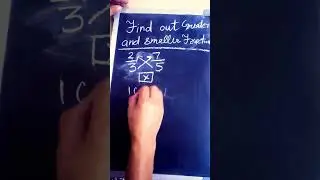 Find out Greater
and smaller Fraction
2/3 7/5
x
10